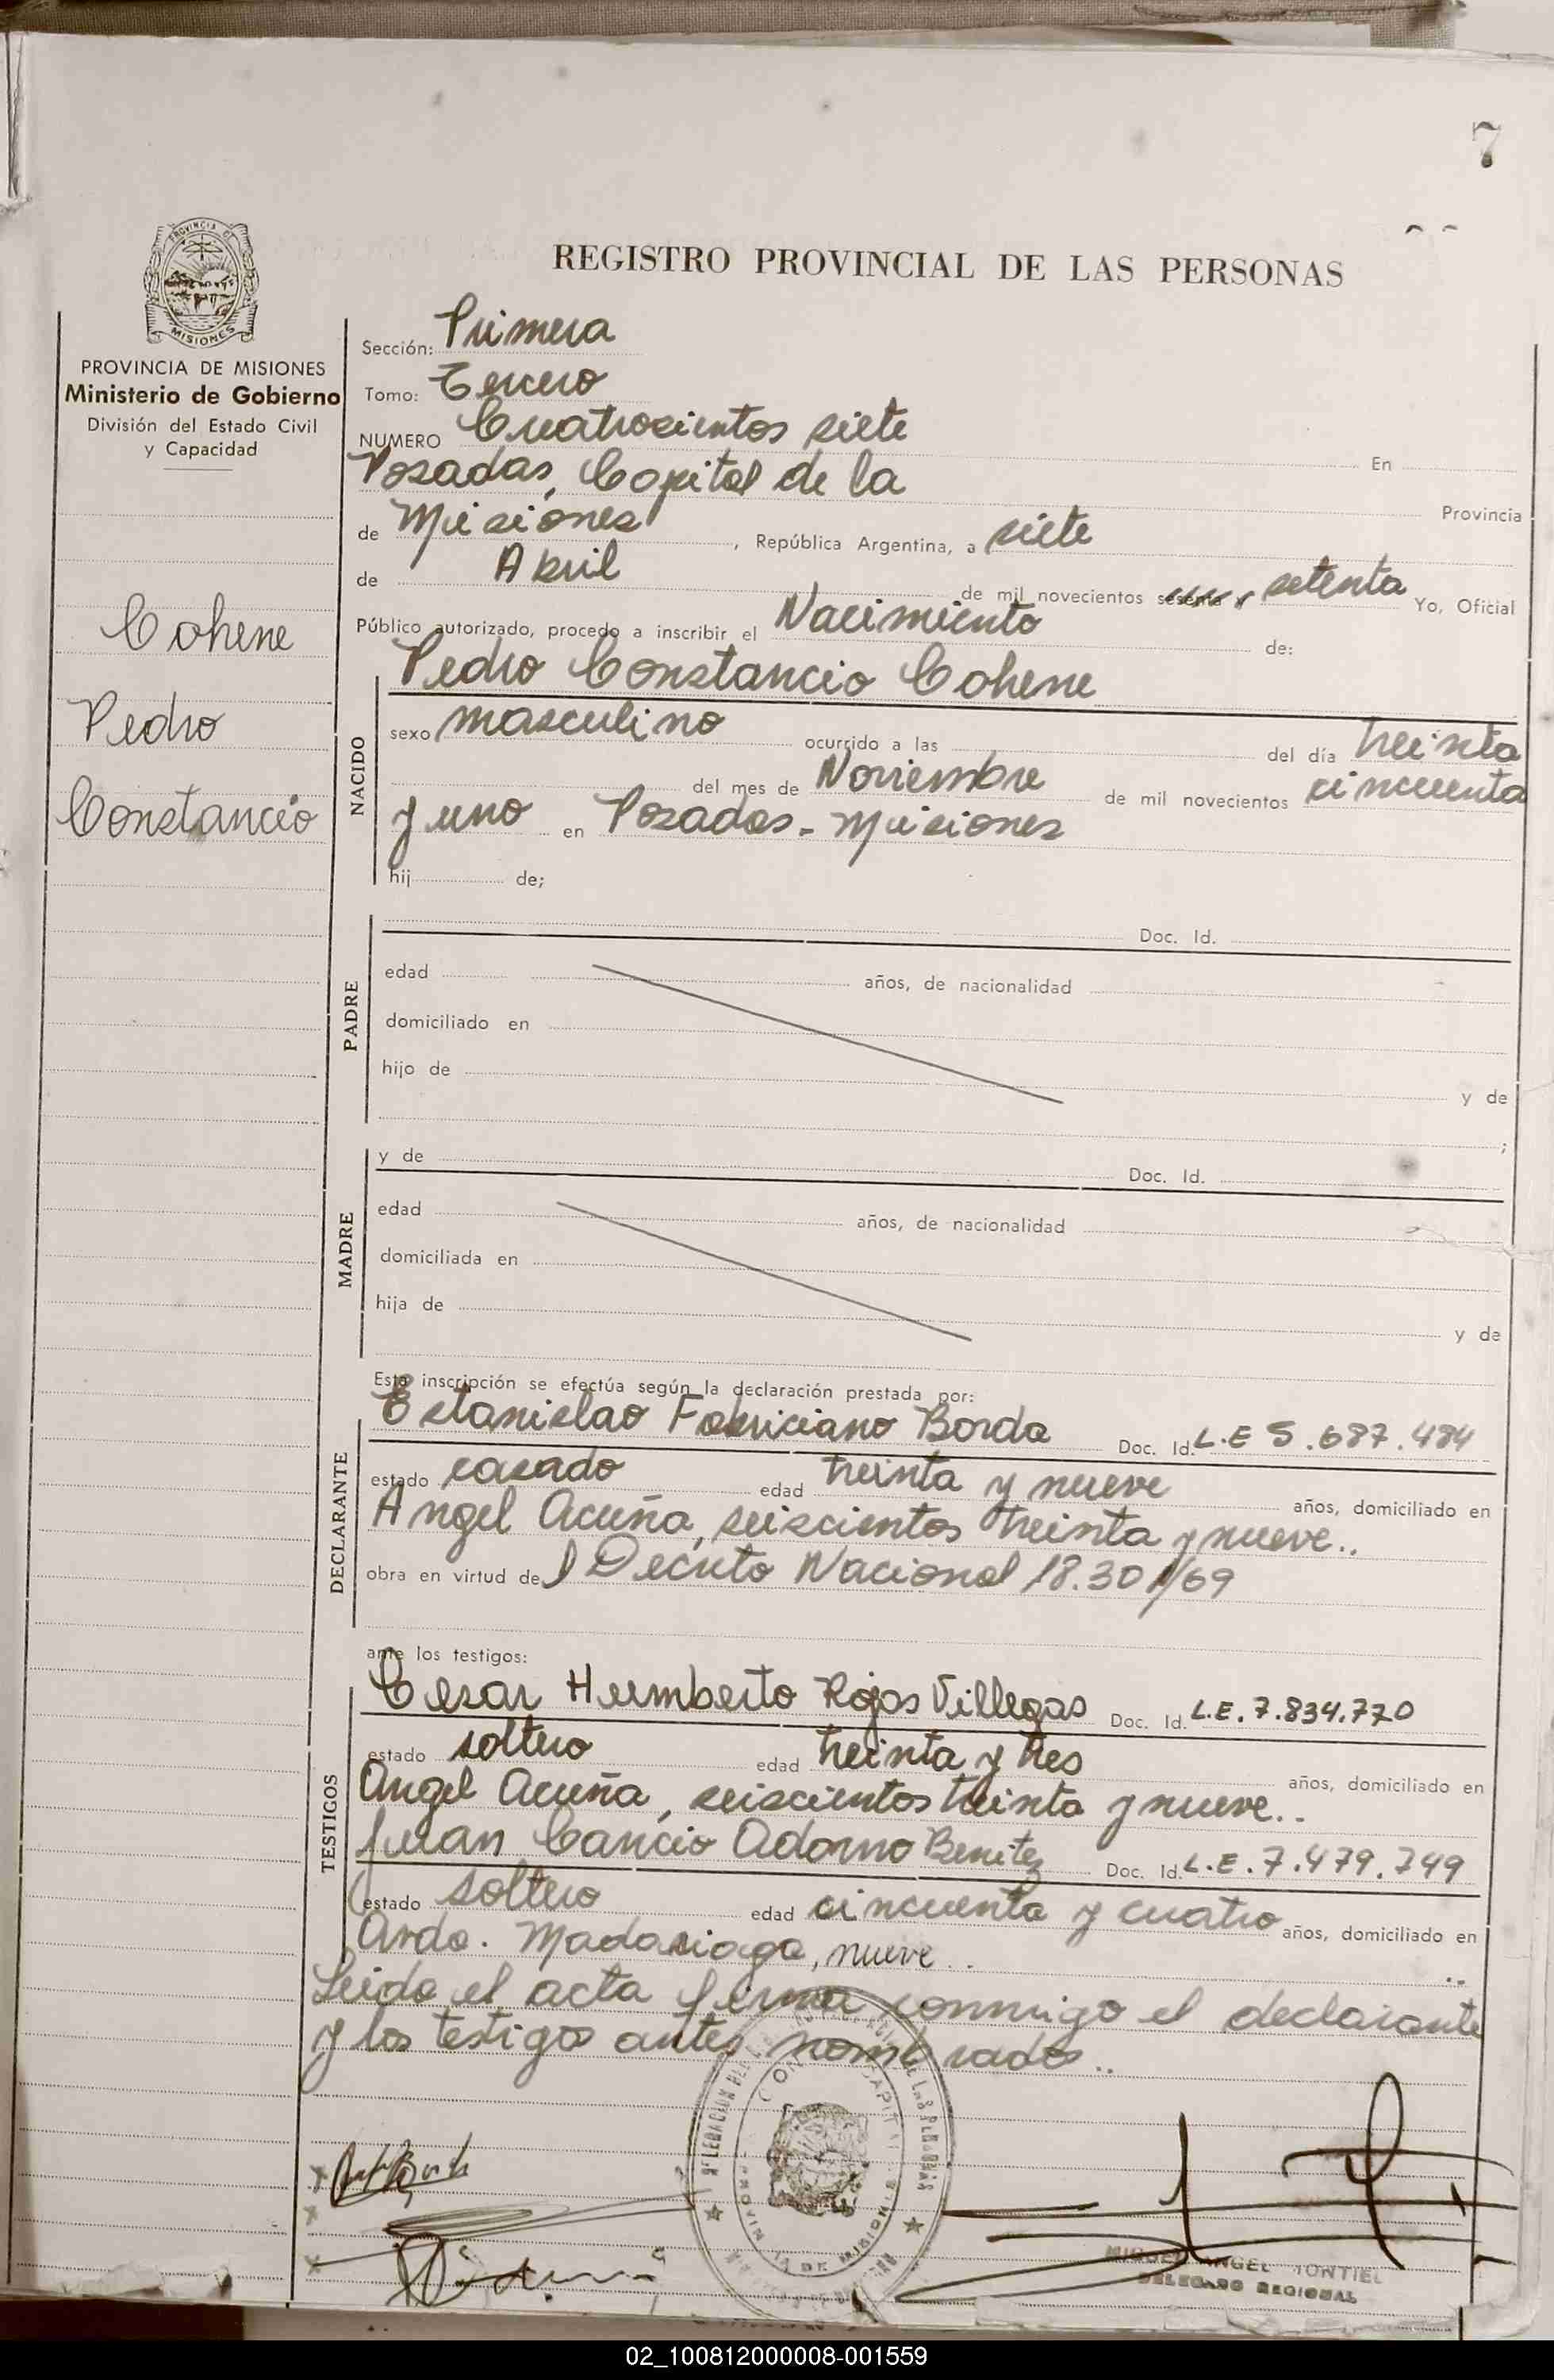 7
REGISTRO PROVINCIAL DE LAS PERSONAS
PROVINCIA DE
MISIONES
PROVINCIA DE MISIONES
Ministerio de Gobierno
División del Estado Civil
y Capacidad
Cohene
Pedro
Constancio
Sección: Primera
Tomo: Tercero
NUMERO Cuatrosientos siete En
Posadas, Capital de la Provincia
de Misiones, República Argentina, a siete
de Abril de mil novecientos sesenta y setenta Yo, Oficial
Público autorizado, procedo a inscribir el Nacimiento de:
NACIDO
Pedro Constancio Cohene
sexo masculino ocurrido a las del día treinta
del mes de Noviembre de mil novecientos cincuenta
y uno en Posadas - Misiones
hij de;
PADRE
Doc. Id.
edad años, de nacionalidad
domiciliado en
hijo de y de
;
MADRE
y de Doc. Id.
edad años, de nacionalidad
domiciliada en
hija de y de
Esta inscripción se efectúa según la declaración prestada por:
DECLARANTE
Estanislao Fabriciano Borda Doc. Id. L.E 5.687.484
estado casado edad treinta y nueve años, domiciliado en
Angel Acuña, seiscientos treinta y nueve..
obra en virtud del Decreto Nacional 18.301/69
ante los testigos:
TESTIGOS
Cesar Humberto Rojas Villegas Doc. Id. L.E. 7.834.770
estado soltero edad treinta y tres años, domiciliado en
Angel Acuña, seiscientos treinta y nueve..
Juan Cancio Adorno Benitez Doc. Id. L.E. 7.479.749
estado soltero edad cincuenta y cuatro años, domiciliado en
Avda. Madariaga, nueve.. ..
Leida el acta firma conmigo el declarante
y los testigos antes nombrados..
PROVINCIA DE MISIONES
MIGUEL ANGEL MONTIEL
DELEGADO REGIONAL
02_100812000008-001559